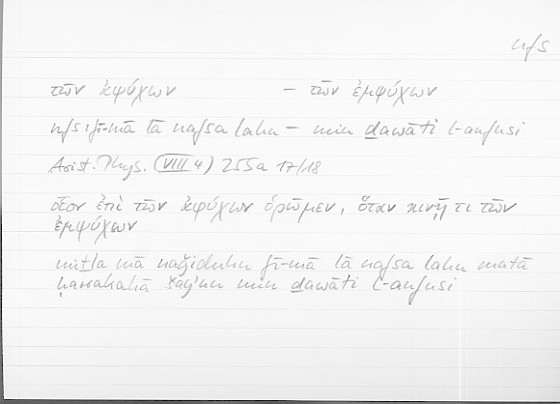 nfs
τῶν ἀψύχων – τῶν ἐμψύχων
nfs: fī-mā lā nafsa lahu – min ḏawāti l-anfusi
Arist. Phys. (VIII 4) 255a 17/18
ἐπὶ τῶν ἀψύχων ὁρῶμεν, ὅταν κινῇ τι τῶν
ἐμψύχων
miṯla mā naǧiduhu fī-mā lā nafsa lahu matā
ḥarrakahā šayʾun min ḏawāti l-anfusi